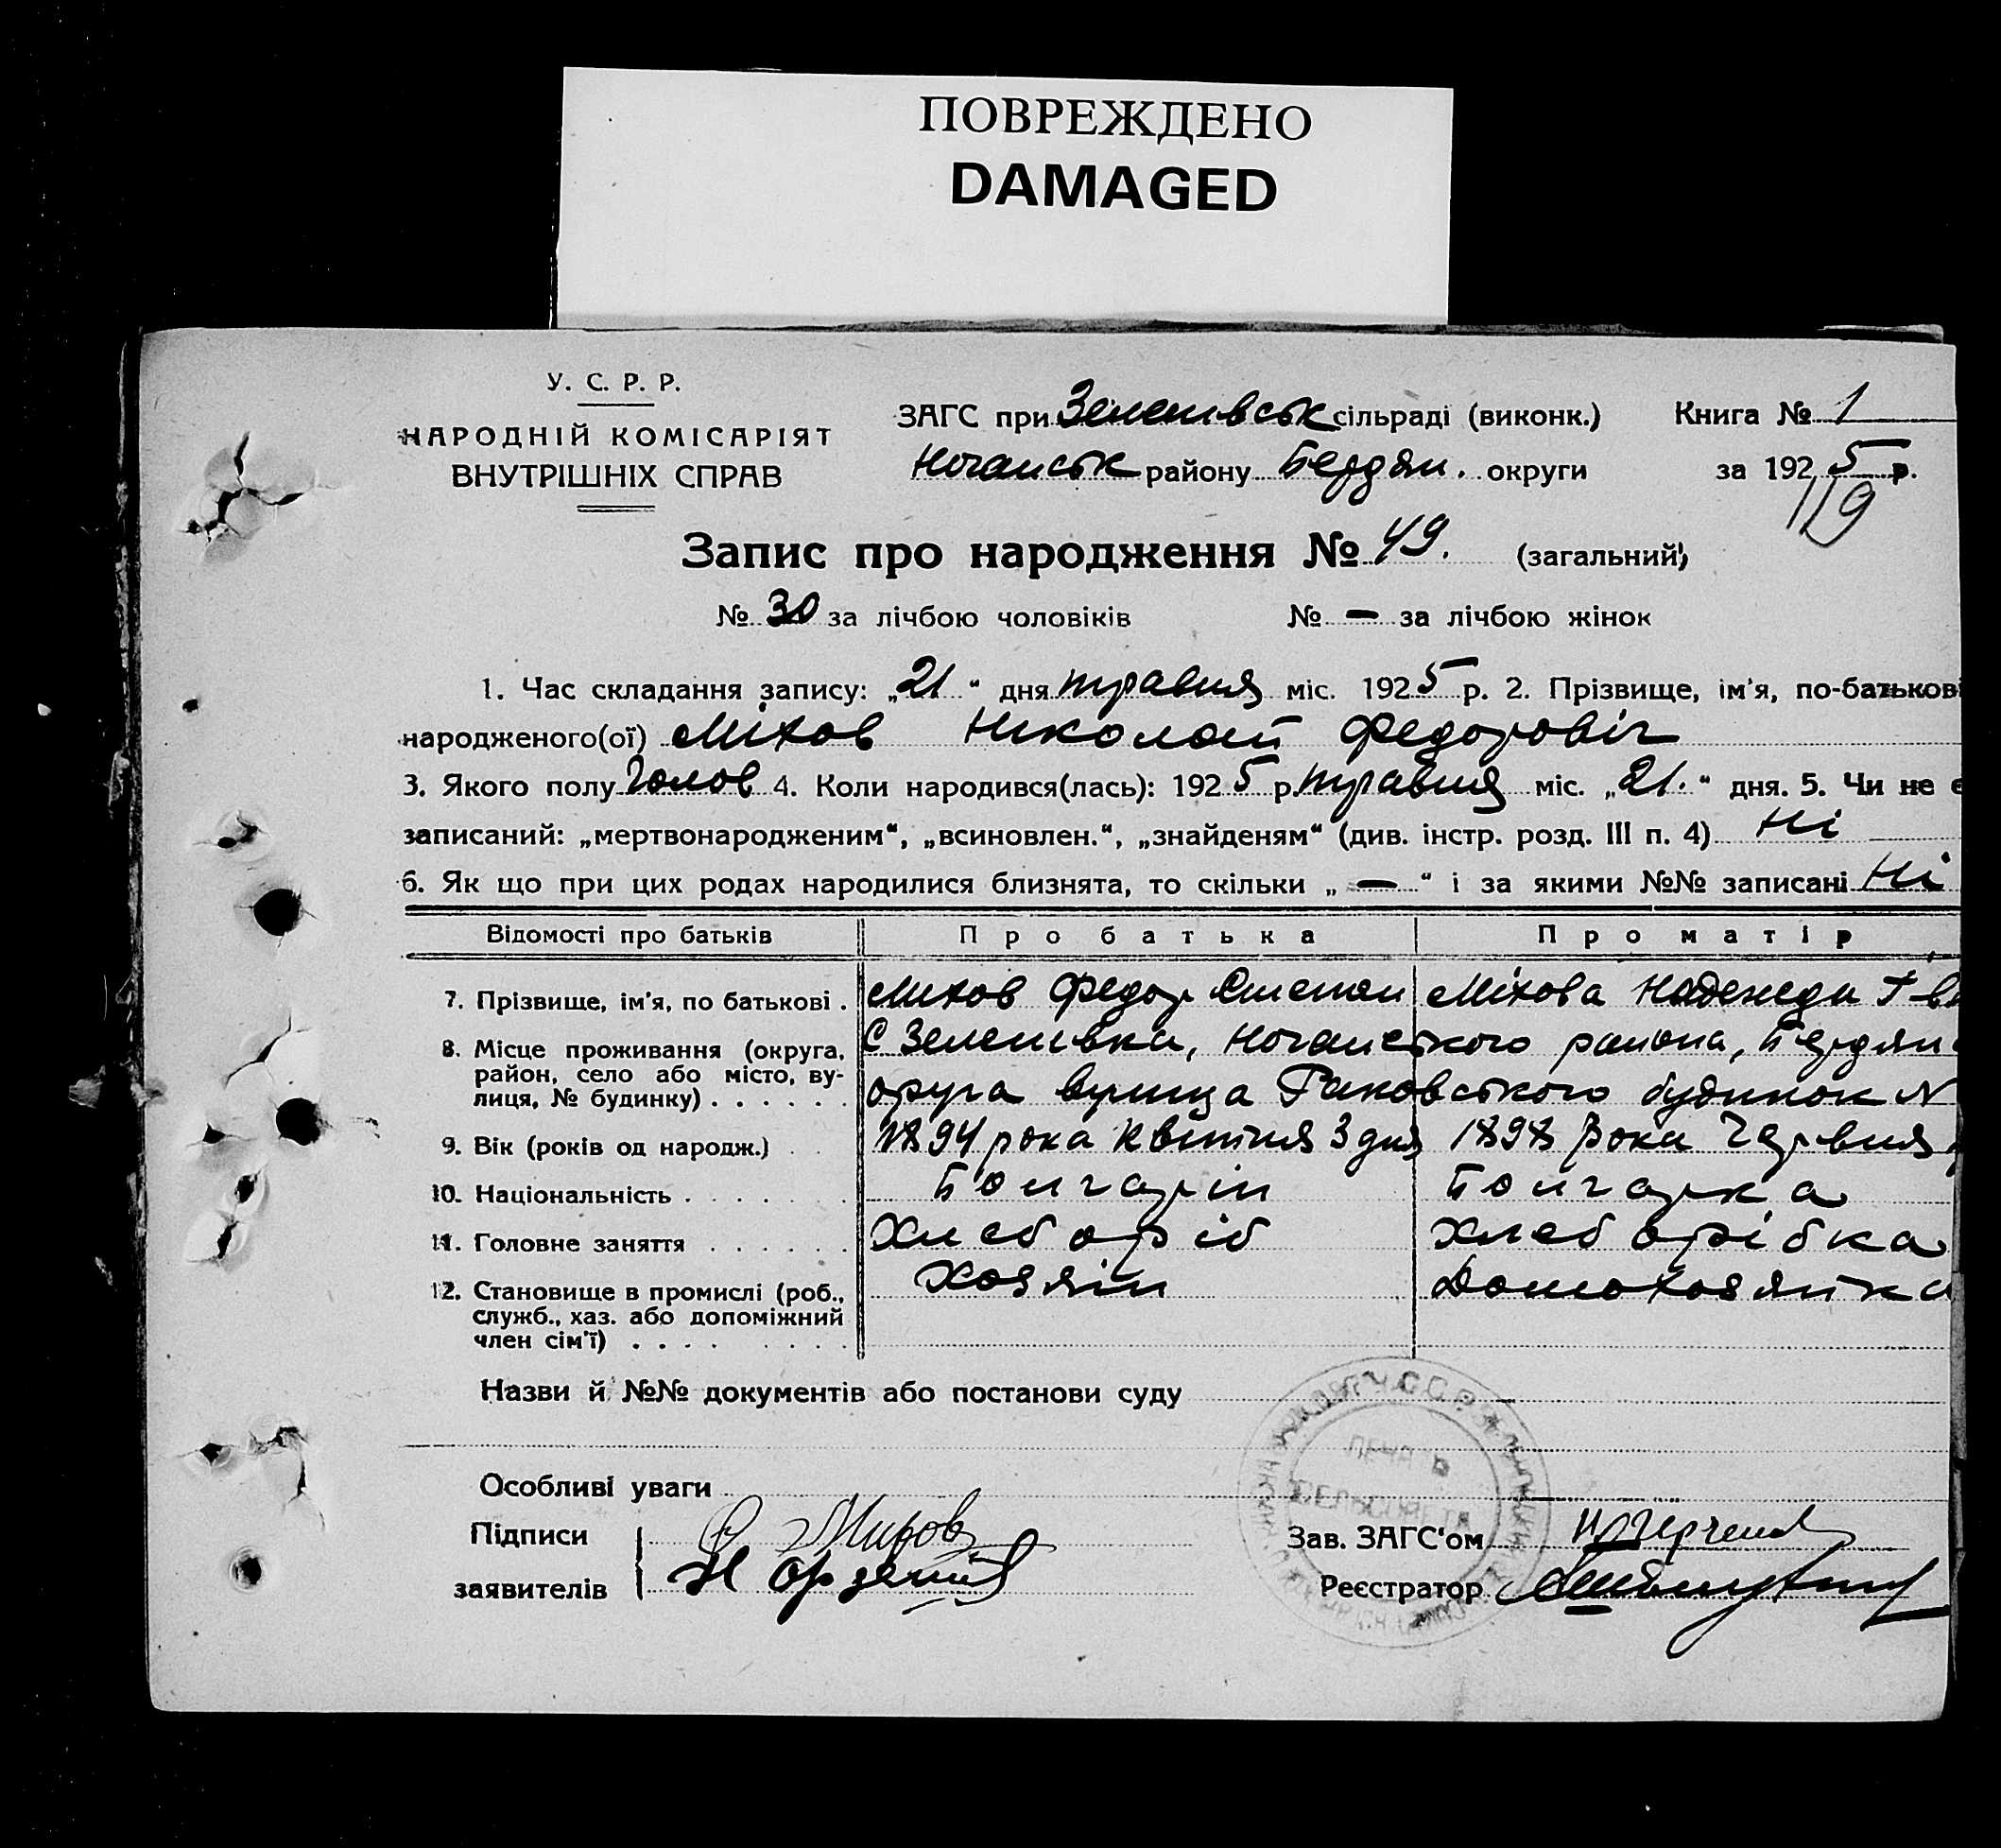 ПОВРЕЖДЕНО
DAMAGED
У. С. Р. Р.
НАРОДНІЙ КОМІСАРІЯТ
ВНУТРІШНІХ СПРАВ
ЗАГС при Зеленівськ сільраді (виконк.) Книга № 1
Ногайськ району Бердян. округи за 1925 р.
119
Запис про народження № 49. (загальний)
№ 30 за лічбою чоловіків № — за лічбою жінок
1. Час складання запису: „21“ дня травня міс. 1925 р. 2. Прізвище, ім'я, по-батькові
народженого(ої) Міхов Николай Федоровіч
3. Якого полу Чолов 4. Коли народився(лась): 1925 р. травня міс. „21.“ дня. 5. Чи не є
записаний: „мертвонародженим“, „всиновлен.“, „знайденям“ (див. інстр. розд. III п. 4) Ні
6. Як що при цих родах народилися близнята, то скільки „—“ і за якими №№ записані Ні
Відомості про батьків Про батька Про матір
7. Прізвище, ім'я, по батькові . Михов Федор Степан Міхова Надежда
8. Місце проживання (округа, С Зеленівка, Ногайського района, Бердян
район, село або місто, ву-
лиця, № будинку) . . . . . . округа вулица Раковського будинок №
9. Вік (років од народж.) . . 1894 рока Квітня 3 дня 1898 рока Червня
10. Національність . . . . . . . Болгарін Болгарка
11. Головне заняття . . . . . . Хлебороіб Хлеборібка
12. Становище в промислі (роб., Хозяін Домохозяйка
служб., хаз. або допоміжний
член сім'ї) . . . . . . . .
Назви й №№ документів або постанови суду
Особливі уваги
Підписи Михов Зав. ЗАГС'ом
заявителів Реєстратор
ПЕЧАТЬ
СЕЛЬСОВЕТА